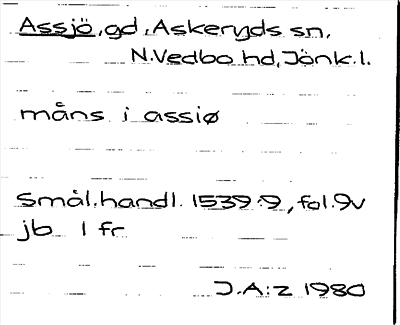 Assjö, gd, Askeryds sn,
N.Vedbo hd, Jönk.l.
måns i assiø
Smål.handl. 1539:9, fol.9v
jb 1 fr
J.A:z 1980